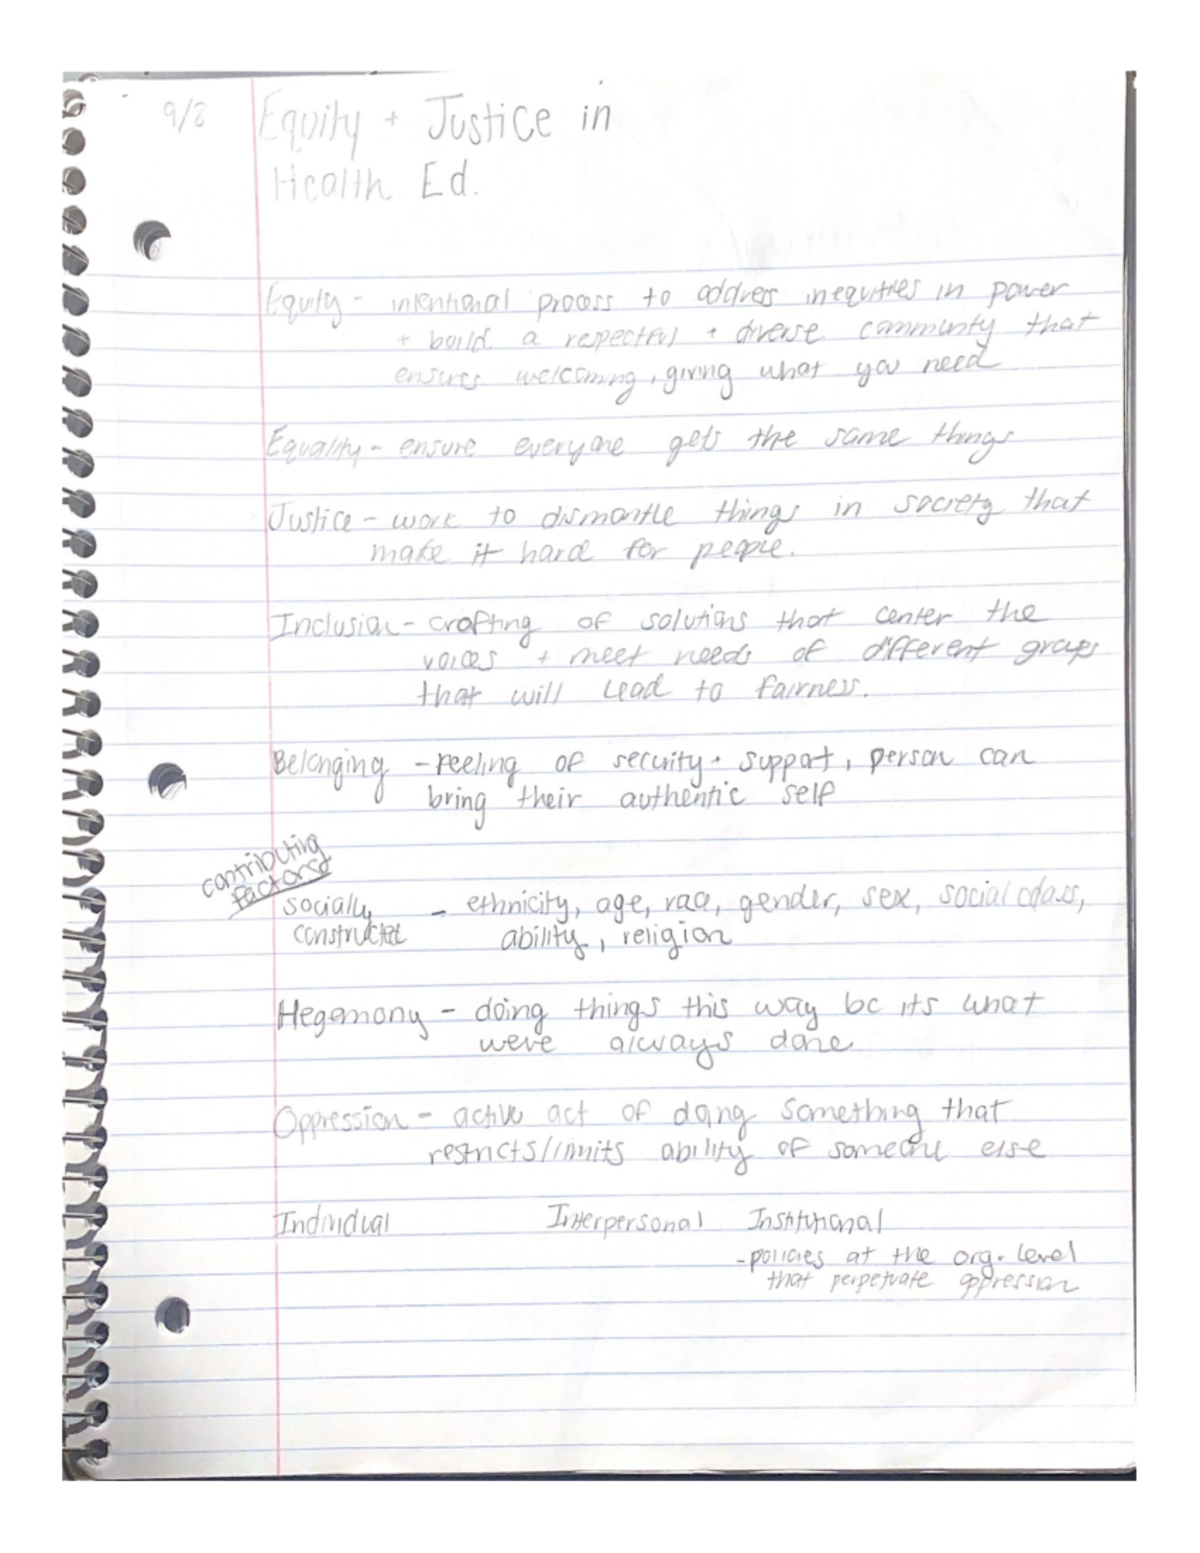 9/8
Equity + Justice in
Health Ed.
Equity - intentional process to address inequities in power
+ build a respectful + diverse community that
ensures welcoming, giving what you need
Equality - ensure everyone gets the same things
Justice - work to dismantle things in society that
make it hard for people.
Inclusion - crafting of solutions that center the
voices + meet needs of different groups
that will lead to fairness.
Belonging - feeling of security + support, person can
bring their authentic self
contributing
factors
socially - ethnicity, age, race, gender, sex, social class,
constructed ability, religion
Hegemony - doing things this way bc its what
were always done
Oppression - active act of doing something that
restricts/limits ability of someone else
Individual Interpersonal Institutional
- policies at the org. level
that perpetuate oppression